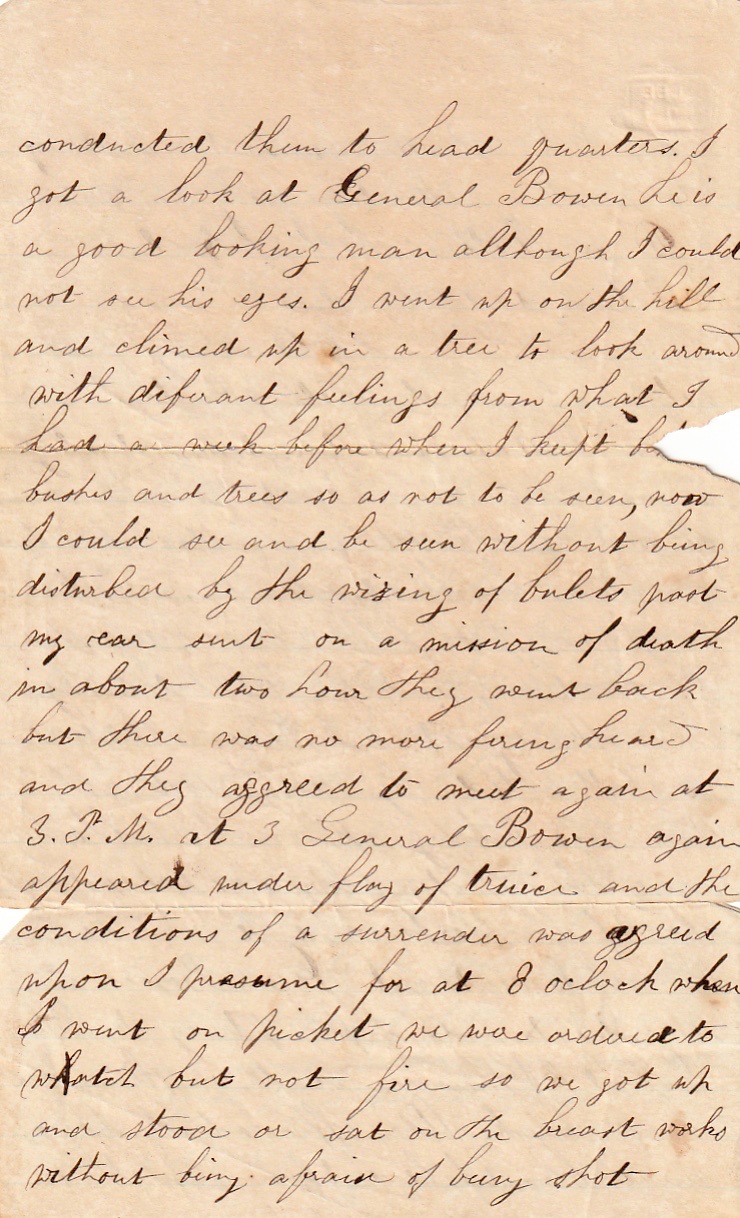 conducted them to head quarters. I
got a look at General Bowen he is
a good looking man although I could
not see his eyes. I went up on the hill
and climed up in a tree to look around
with diferant feelings from what I
had a week before when I keept
bushes and trees so as not to be seen, now
I could see and be seen without being
disturbed by the wizing of bulets past
my ear sent on a mission of death
in about two hour they went back
but there was no more fireng heard
and they aggreed to meet again at
3. P. M. at 3 General Bowen again
appeared under flag of truice and the
conditions of a surrender was agreed
upon I presume for at 8 oclock when
I went on picket we were ordered to
whatch but not fire so we got up
and stood or sat on the breast works
without bing afraid of being shot